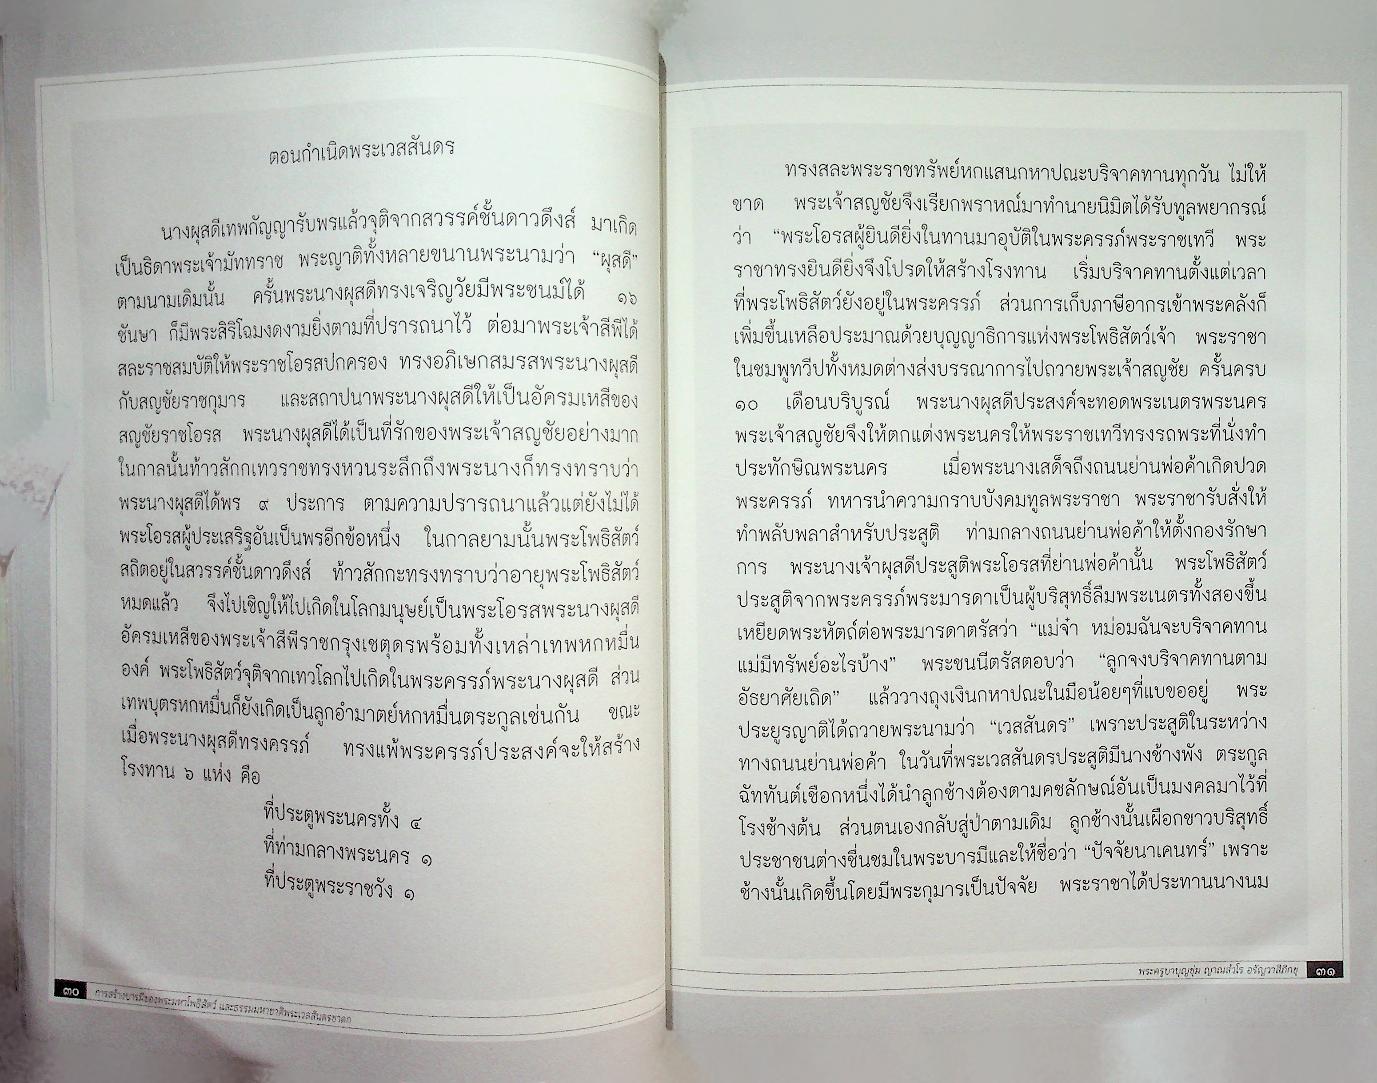 ตอนกำเนิดพระเวสสันดร
นางผุสดีเทพกัญญารับพรแล้วจุติจากสวรรค์ชั้นดาวดึงส์ มาเกิด
เป็นธิดาพระเจ้ามัททราช พระญาติทั้งหลายขนานพระนามว่า “ผุสดี”
ตามนามเดิมนั้น ครั้นพระนางผุสดีทรงเจริญวัยมีพระชนม์ได้ ๑๖
ชันษา ก็มีพระสิริโฉมงดงามยิ่งตามที่ปรารถนาไว้ ต่อมาพระเจ้าสีพีได้
สละราชสมบัติให้พระราชโอรสปกครอง ทรงอภิเษกสมรสพระนางผุสดี
กับสญชัยราชกุมาร และสถาปนาพระนางผุสดีให้เป็นอัครมเหสีของ
สญชัยราชโอรส พระนางผุสดีได้เป็นที่รักของพระเจ้าสญชัยอย่างมาก
ในกาลนั้นท้าวสักกเทวราชทรงหวนระลึกถึงพระนางก็ทรงทราบว่า
พระนางผุสดีได้พร ๙ ประการ ตามความปรารถนาแล้วแต่ยังไม่ได้
พระโอรสผู้ประเสริฐอันเป็นพรอีกข้อหนึ่ง ในกาลยามนั้นพระโพธิสัตว์
สถิตอยู่ในสวรรค์ชั้นดาวดึงส์ ท้าวสักกะทรงทราบว่าอายุพระโพธิสัตว์
หมดแล้ว จึงไปเชิญให้ไปเกิดในโลกมนุษย์เป็นพระโอรสพระนางผุสดี
อัครมเหสีของพระเจ้าสีพีราชกรุงเชตุดรพร้อมทั้งเหล่าเทพหกหมื่น
องค์ พระโพธิสัตว์จุติจากเทวโลกไปเกิดในพระครรภ์พระนางผุสดี ส่วน
เทพบุตรหกหมื่นก็ยังเกิดเป็นลูกอำมาตย์หกหมื่นตระกูลเช่นกัน ขณะ
เมื่อพระนางผุสดีทรงครรภ์ ทรงแพ้พระครรภ์ประสงค์จะให้สร้าง
โรงทาน ๖ แห่ง คือ
ที่ประตูพระนครทั้ง ๔
ที่ท่ามกลางพระนคร ๑
ที่ประตูพระราชวัง ๑
๓๐ การสร้างบารมีของพระมหาโพธิสัตว์ และธรรมมหาชาติพระเวสสันดรชาดก
ทรงสละพระราชทรัพย์หกแสนกหาปณะบริจาคทานทุกวัน ไม่ให้
ขาด พระเจ้าสญชัยจึงเรียกพราหณ์มาทำนายนิมิตได้รับทูลพยากรณ์
ว่า “พระโอรสผู้ยินดียิ่งในทานมาอุบัติในพระครรภ์พระราชเทวี พระ
ราชาทรงยินดียิ่งจึงโปรดให้สร้างโรงทาน เริ่มบริจาคทานตั้งแต่เวลา
ที่พระโพธิสัตว์ยังอยู่ในพระครรภ์ ส่วนการเก็บภาษีอากรเข้าพระคลังก็
เพิ่มขึ้นเหลือประมาณด้วยบุญญาธิการแห่งพระโพธิสัตว์เจ้า พระราชา
ในชมพูทวีปทั้งหมดต่างส่งบรรณาการไปถวายพระเจ้าสญชัย ครั้นครบ
๑๐ เดือนบริบูรณ์ พระนางผุสดีประสงค์จะทอดพระเนตรพระนคร
พระเจ้าสญชัยจึงให้ตกแต่งพระนครให้พระราชเทวีทรงรถพระที่นั่งทำ
ประทักษิณพระนคร เมื่อพระนางเสด็จถึงถนนย่านพ่อค้าเกิดปวด
พระครรภ์ ทหารนำความกราบบังคมทูลพระราชา พระราชารับสั่งให้
ทำพลับพลาสำหรับประสูติ ท่ามกลางถนนย่านพ่อค้าให้ตั้งกองรักษา
การ พระนางเจ้าผุสดีประสูติพระโอรสที่ย่านพ่อค้านั้น พระโพธิสัตว์
ประสูติจากพระครรภ์พระมารดาเป็นผู้บริสุทธิ์ลืมพระเนตรทั้งสองขึ้น
เหยียดพระหัตถ์ต่อพระมารดาตรัสว่า “แม่จ๋า หม่อมฉันจะบริจาคทาน
แม่มีทรัพย์อะไรบ้าง” พระชนนีตรัสตอบว่า “ลูกจงบริจาคทานตาม
อัธยาศัยเถิด” แล้ววางถุงเงินกหาปณะในมือน้อยๆที่แบขออยู่ พระ
ประยูรญาติได้ถวายพระนามว่า “เวสสันดร” เพราะประสูติในระหว่าง
ทางถนนย่านพ่อค้า ในวันที่พระเวสสันดรประสูติมีนางช้างพัง ตระกูล
ฉัททันต์เชือกหนึ่งได้นำลูกช้างต้องตามคชลักษณ์อันเป็นมงคลมาไว้ที่
โรงช้างต้น ส่วนตนเองกลับสู่ป่าตามเดิม ลูกช้างนั้นเผือกขาวบริสุทธิ์
ประชาชนต่างชื่นชมในพระบารมีและให้ชื่อว่า “ปัจจัยนาเคนทร์” เพราะ
ช้างนั้นเกิดขึ้นโดยมีพระกุมารเป็นปัจจัย พระราชาได้ประทานนางนม
พระครูบาบุญชุ่ม ญาณสํวโร อรัญวาสีภิกขุ ๓๑